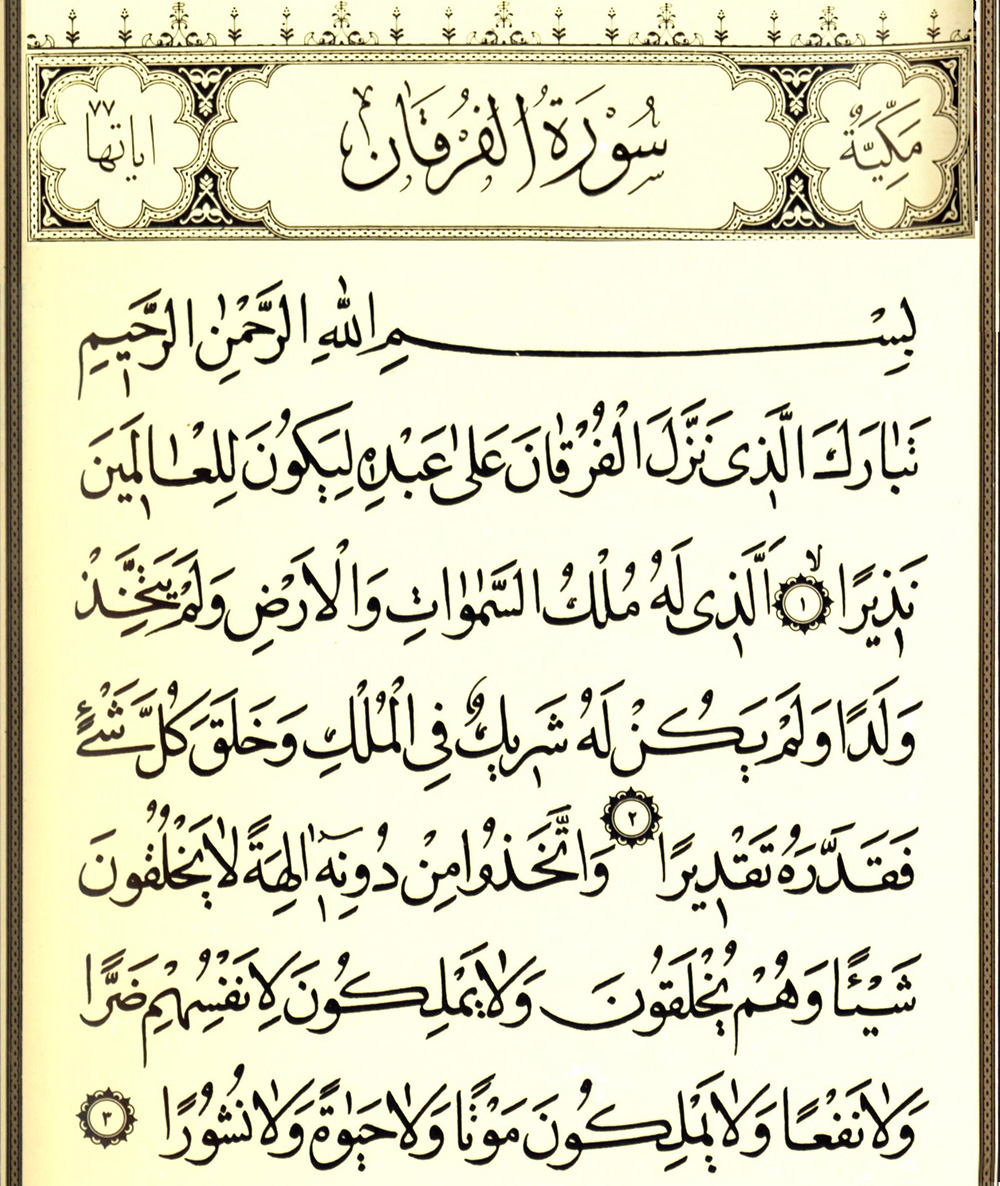 مَكِّيَّةٌ سُورَةُ الْفُرْقَانِ اياتها ٧٧
بِسْمِ اللّٰهِ الرَّحْمٰنِ الرَّحٖيمِ
تَبَارَكَ الَّذٖى نَزَّلَ الْفُرْقَانَ عَلٰى عَبْدِهٖ لِيَكُونَ لِلْعَالَمٖينَ
نَذٖيرًا ۙ ﴿١﴾ اَلَّذٖى لَهُ مُلْكُ السَّمٰوَاتِ وَالْاَرْضِ وَلَمْ يَتَّخِذْ
وَلَدًا وَلَمْ يَكُنْ لَهُ شَرٖيكٌ فِى الْمُلْكِ وَخَلَقَ كُلَّ شَىْءٍ
فَقَدَّرَهُ تَقْدٖيرًا ﴿٢﴾ وَاتَّخَذُوا مِنْ دُونِهٖٓ اٰلِهَةً لَا يَخْلُقُونَ
شَيْئًا وَهُمْ يُخْلَقُونَ وَلَا يَمْلِكُونَ لِاَنْفُسِهِمْ ضَرًّا
وَلَا نَفْعًا وَلَا يَمْلِكُونَ مَوْتًا وَلَا حَيٰوةً وَلَا نُشُورًا ﴿٣﴾